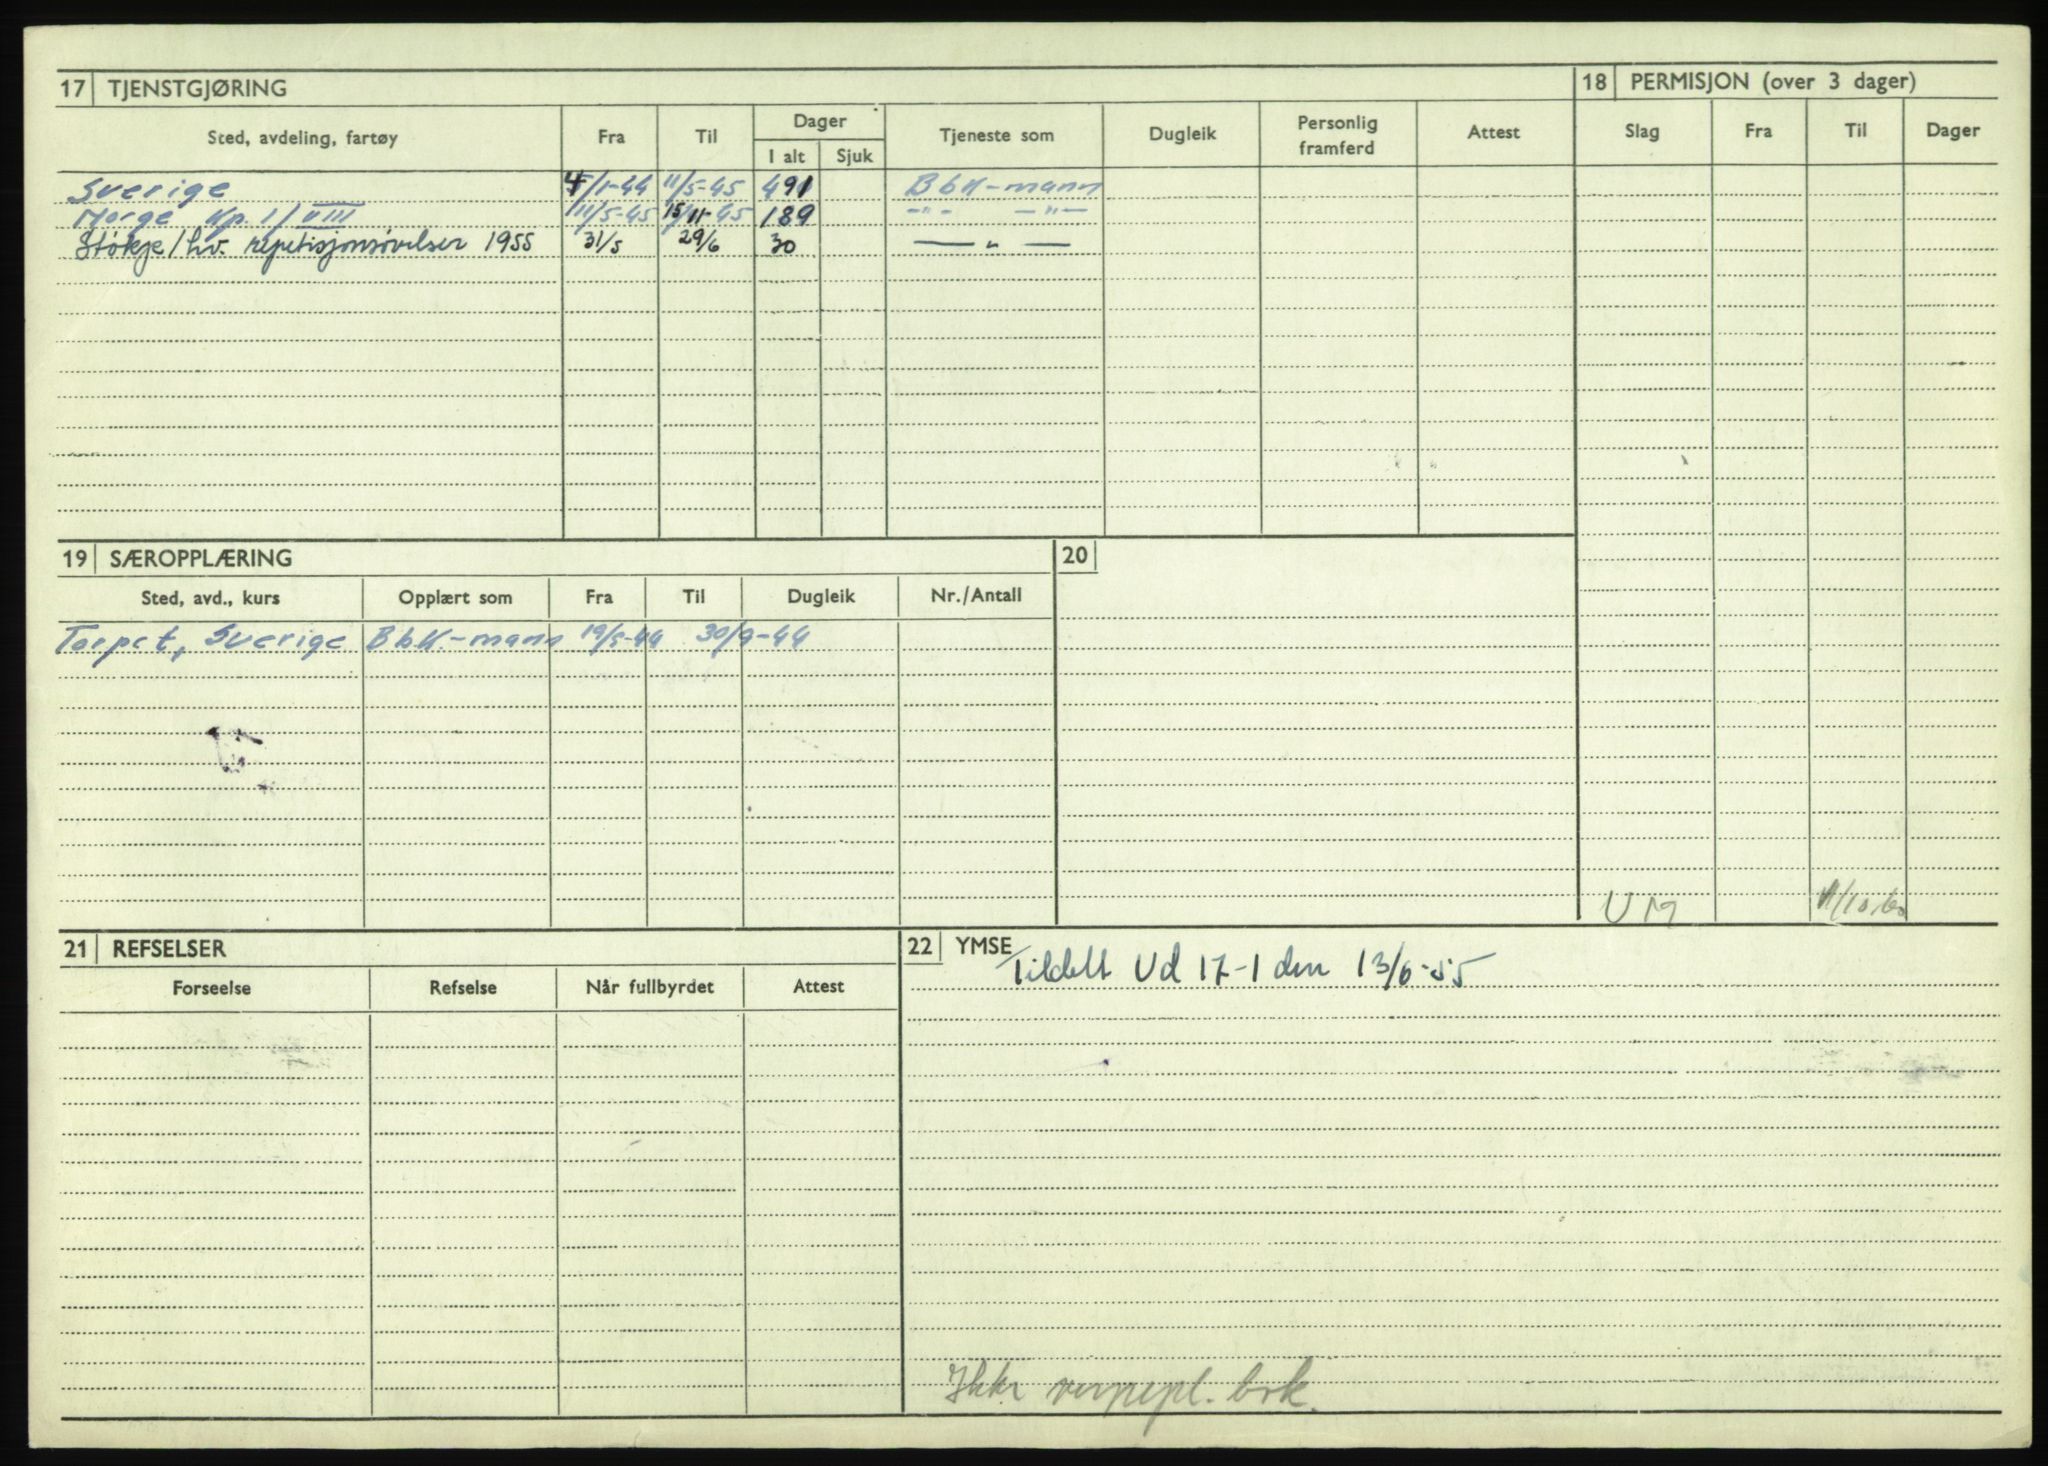 17 TJENSTGJØRING
18 PERMISJON (over 3 dager)
Sted, avdeling, fartøy Fra Til Dager Tjeneste som Dugleik Personlig framferd Attest
I alt Sjuk
Slag Fra Til Dager
Sverige 4/1-44 11/5-45 491 BbK-mann
Norge Kp. 1/VIII 11/5-45 15/11-45 189 —"— —"—
Støkje/hv. repetisjonsøvelser 1955 31/5 29/6 30 — " —
19 SÆROPPLÆRING
20
Sted, avd., kurs Opplært som Fra Til Dugleik Nr./Antall
Torpet, Sverige BbK.-mann 19/5-44 30/9-44
UM 11/10.60
21 REFSELSER
Forseelse Refselse Når fullbyrdet Attest
22 YMSE
Tildelt Ud 17-1 den 13/6-55
Ikke vernepl. bok.